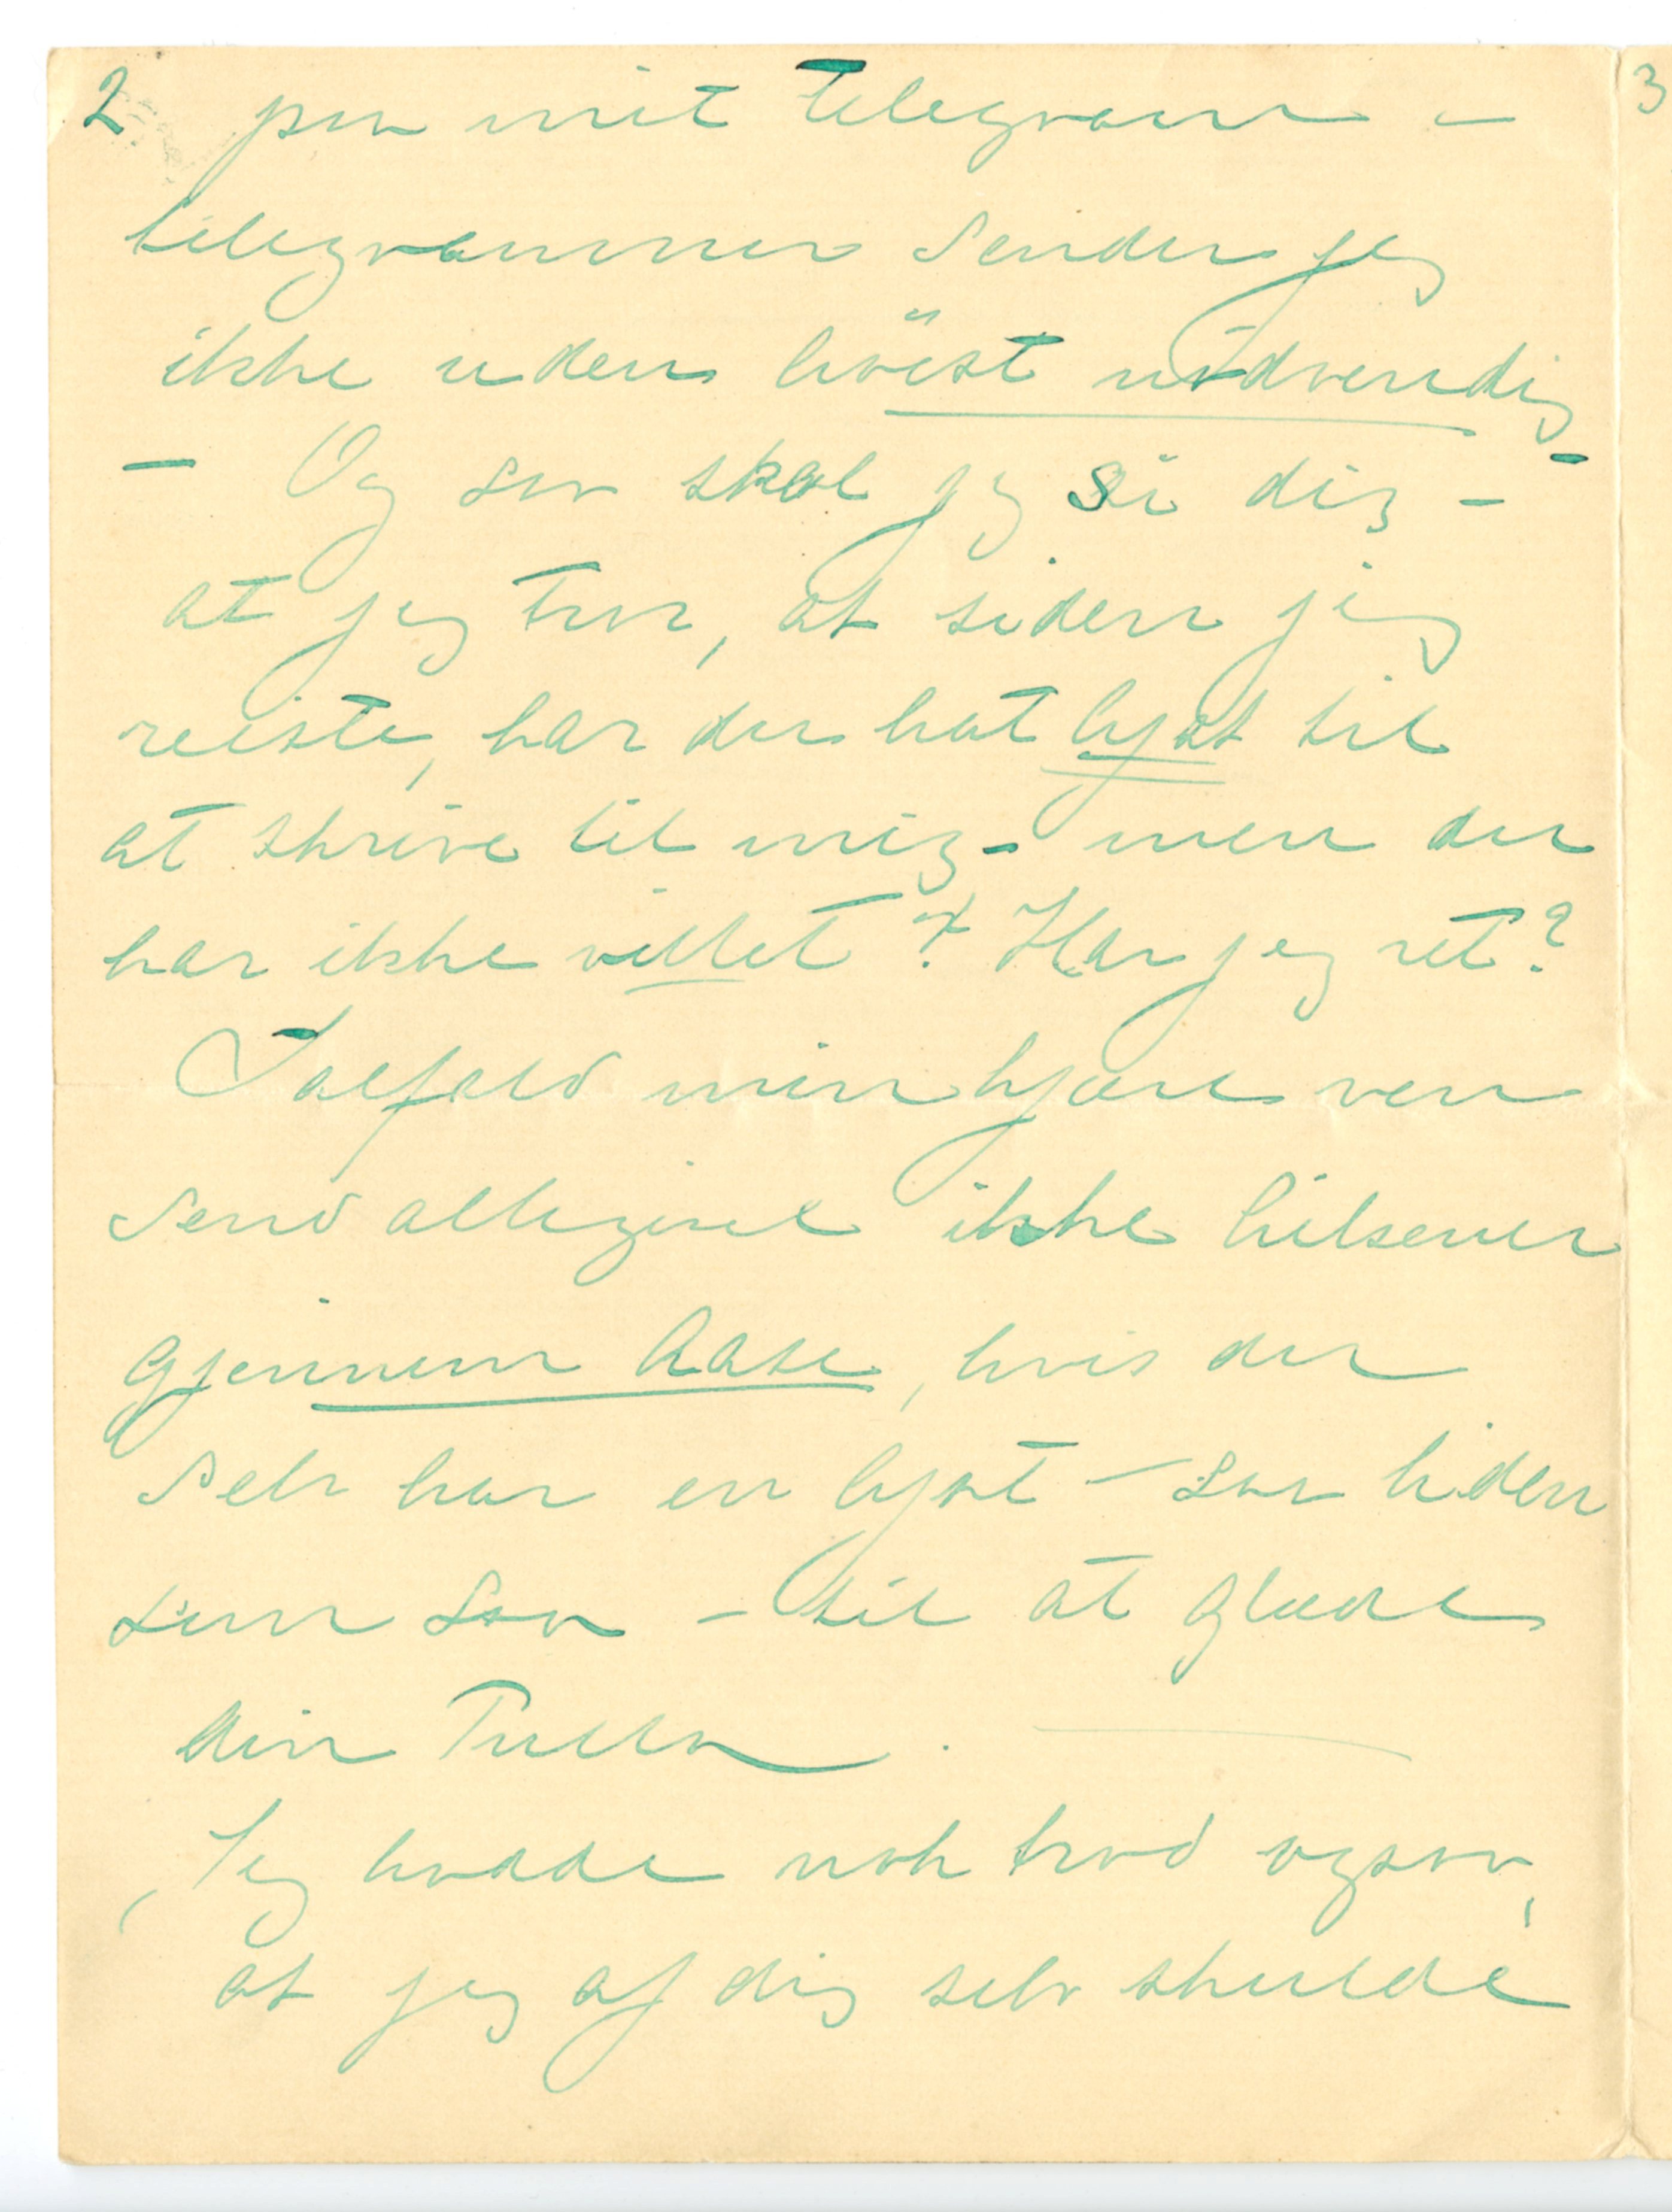 2 paa mit telegram – 3
telegrammer sender jeg
ikke uden höist nödvendig
– Og saa skal jeg si dig –
at jeg tror, at siden jeg
reiste, har du hat lyst til
at skrive til mig – men du
har ikke villet? Har jeg ret?
Ialfald min kjære ven
send alligevel ikke hilsener
gjennem Aase, hvis du
selv har en lyst – saa liden
som saa – til at glæde
din Tulla.
Jeg havde nok trod ogsaa,
at jeg af dig selv skulde